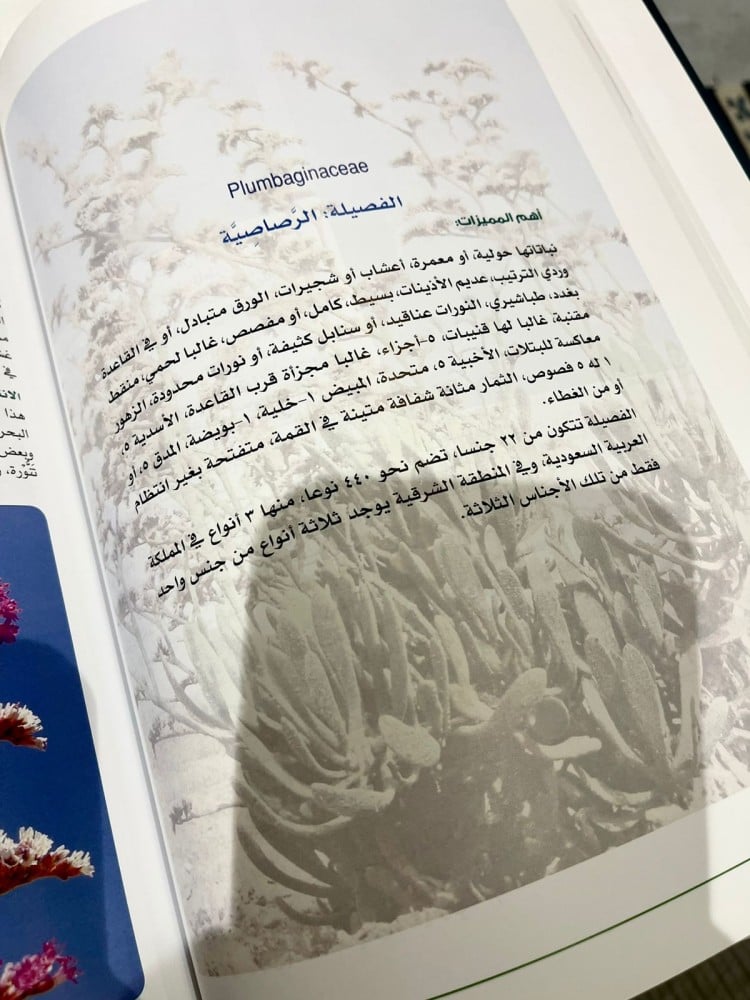 Plumbaginaceae
الفصيلة: الرَّصاصِيَّة
أهم المميزات:
نباتاتها حولية، أو معمرة، أعشاب أو شجيرات، الورق متبادل، أو في القاعدة
وردي الترتيب، عديم الأذينات، بسيط، كامل، أو مفصص، غالبا لحمي، منقط
بغدد، طباشيري، النورات عناقيد، أو سنابل كثيفة، أو نورات محدودة، الزهور
مقنبة، غالبا لها قنيبات، ٥-أجزاء، غالبا مجزأة قرب القاعدة، الأسدية ٥،
معاكسة للبتلات، الأخبية ٥، متحدة، المبيض ١-خلية، ١-بويضة، المدق ٥، أو
١ له ٥ فصوص، الثمار مثانة شفافة متينة في القمة، متفتحة بغير انتظام
أو من الغطاء.
الفصيلة تتكون من ٢٢ جنسا، تضم نحو ٤٤٠ نوعا، منها ٣ أنواع في المملكة
العربية السعودية، وفي المنطقة الشرقية يوجد ثلاثة أنواع من جنس واحد
فقط من تلك الأجناس الثلاثة.
هذا
البحر
وبعض